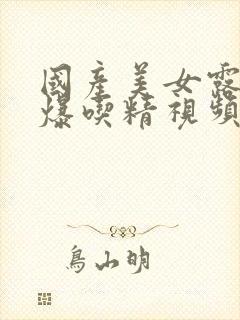 國產美女露
爆喫精視頻
鳥山明